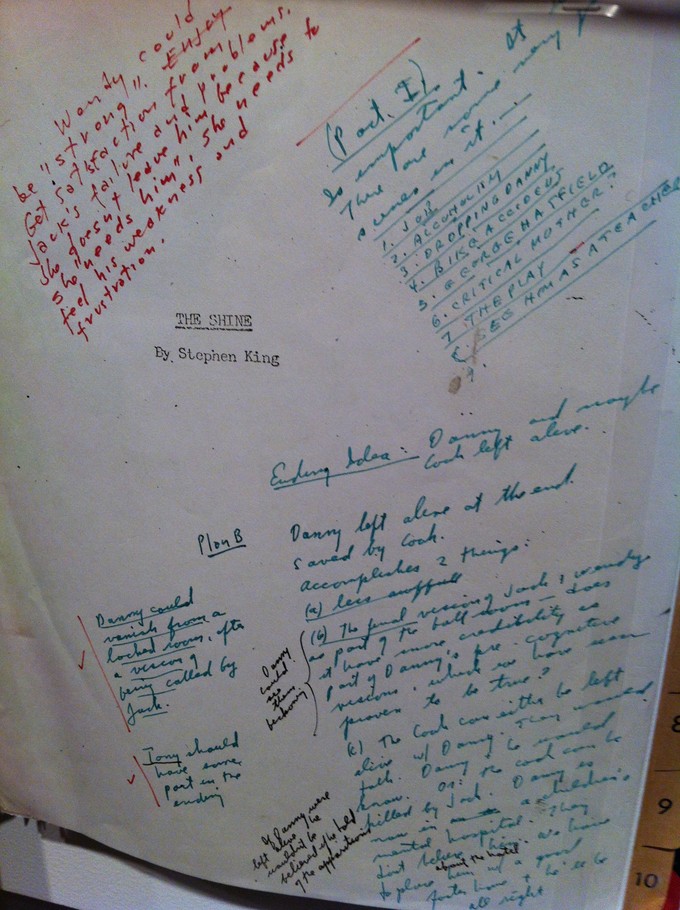 Wendy could
be "strong". Enjoy
Get satisfaction from
Jack's failure and problems.
She doesn't leave him because
she "needs him", she needs to
feel his weakness and
frustration.
(Part. I)
Is important. It
There are some very
scenes in it...
1. JOB
2. ALCOHOLISM
3. DROPPING DANNY
4. BIKE ACCIDENT
5. GEORGE HATFIELD
6. CRITICAL MOTHER?
7. THE PLAY
8. SEE HIM AS A TEACHER
9.
THE SHINE
By Stephen King
Ending Idea: Danny and maybe
Cook left alive.
Plan B
Danny left alive at the end.
saved by Cook.
accomplishes 2 things:
(a) less
(b) The final vision of Jack & Wendy
as part of the ball room — does
it have more credibility as
part of Danny's pre-cognitive
visions, which we have seen
proven to be true?
(c) The Cook can either be left
alive w/ Danny. They would
talk. Danny & he would
know. OR: the cook can be
killed by Jack. Danny is
now in a children's
mental hospital. They
don't believe him
about the hotel. we have
to place him in a good
foster home & he'll be
all right
Danny could
vanish from a
locked room, after
a vision of
being called by
Jack.
Tony should
have some
part in the
ending
Danny
could
see
them
beckoning
If Danny were
left alive he
wouldn't be
believed if he told
of the apparitions
8
9
10